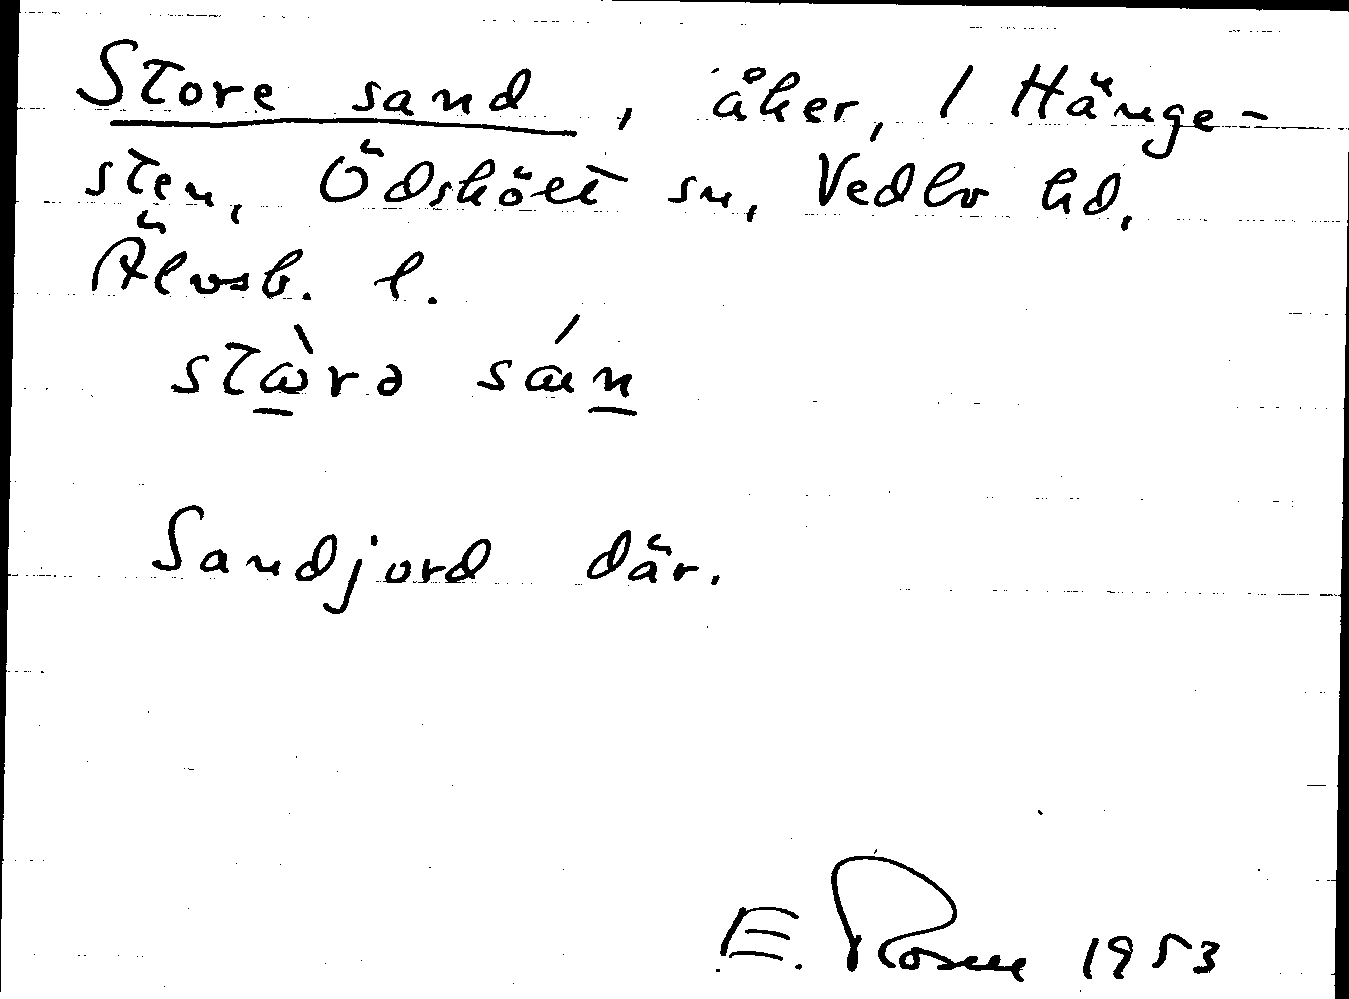 Store sand, åker, 1 Hänge-
sten, Ödskölt sn, Vedbo hd,
Älvsb. l.
stὼrə sán
Sandjord där.
E. Rosén 1953